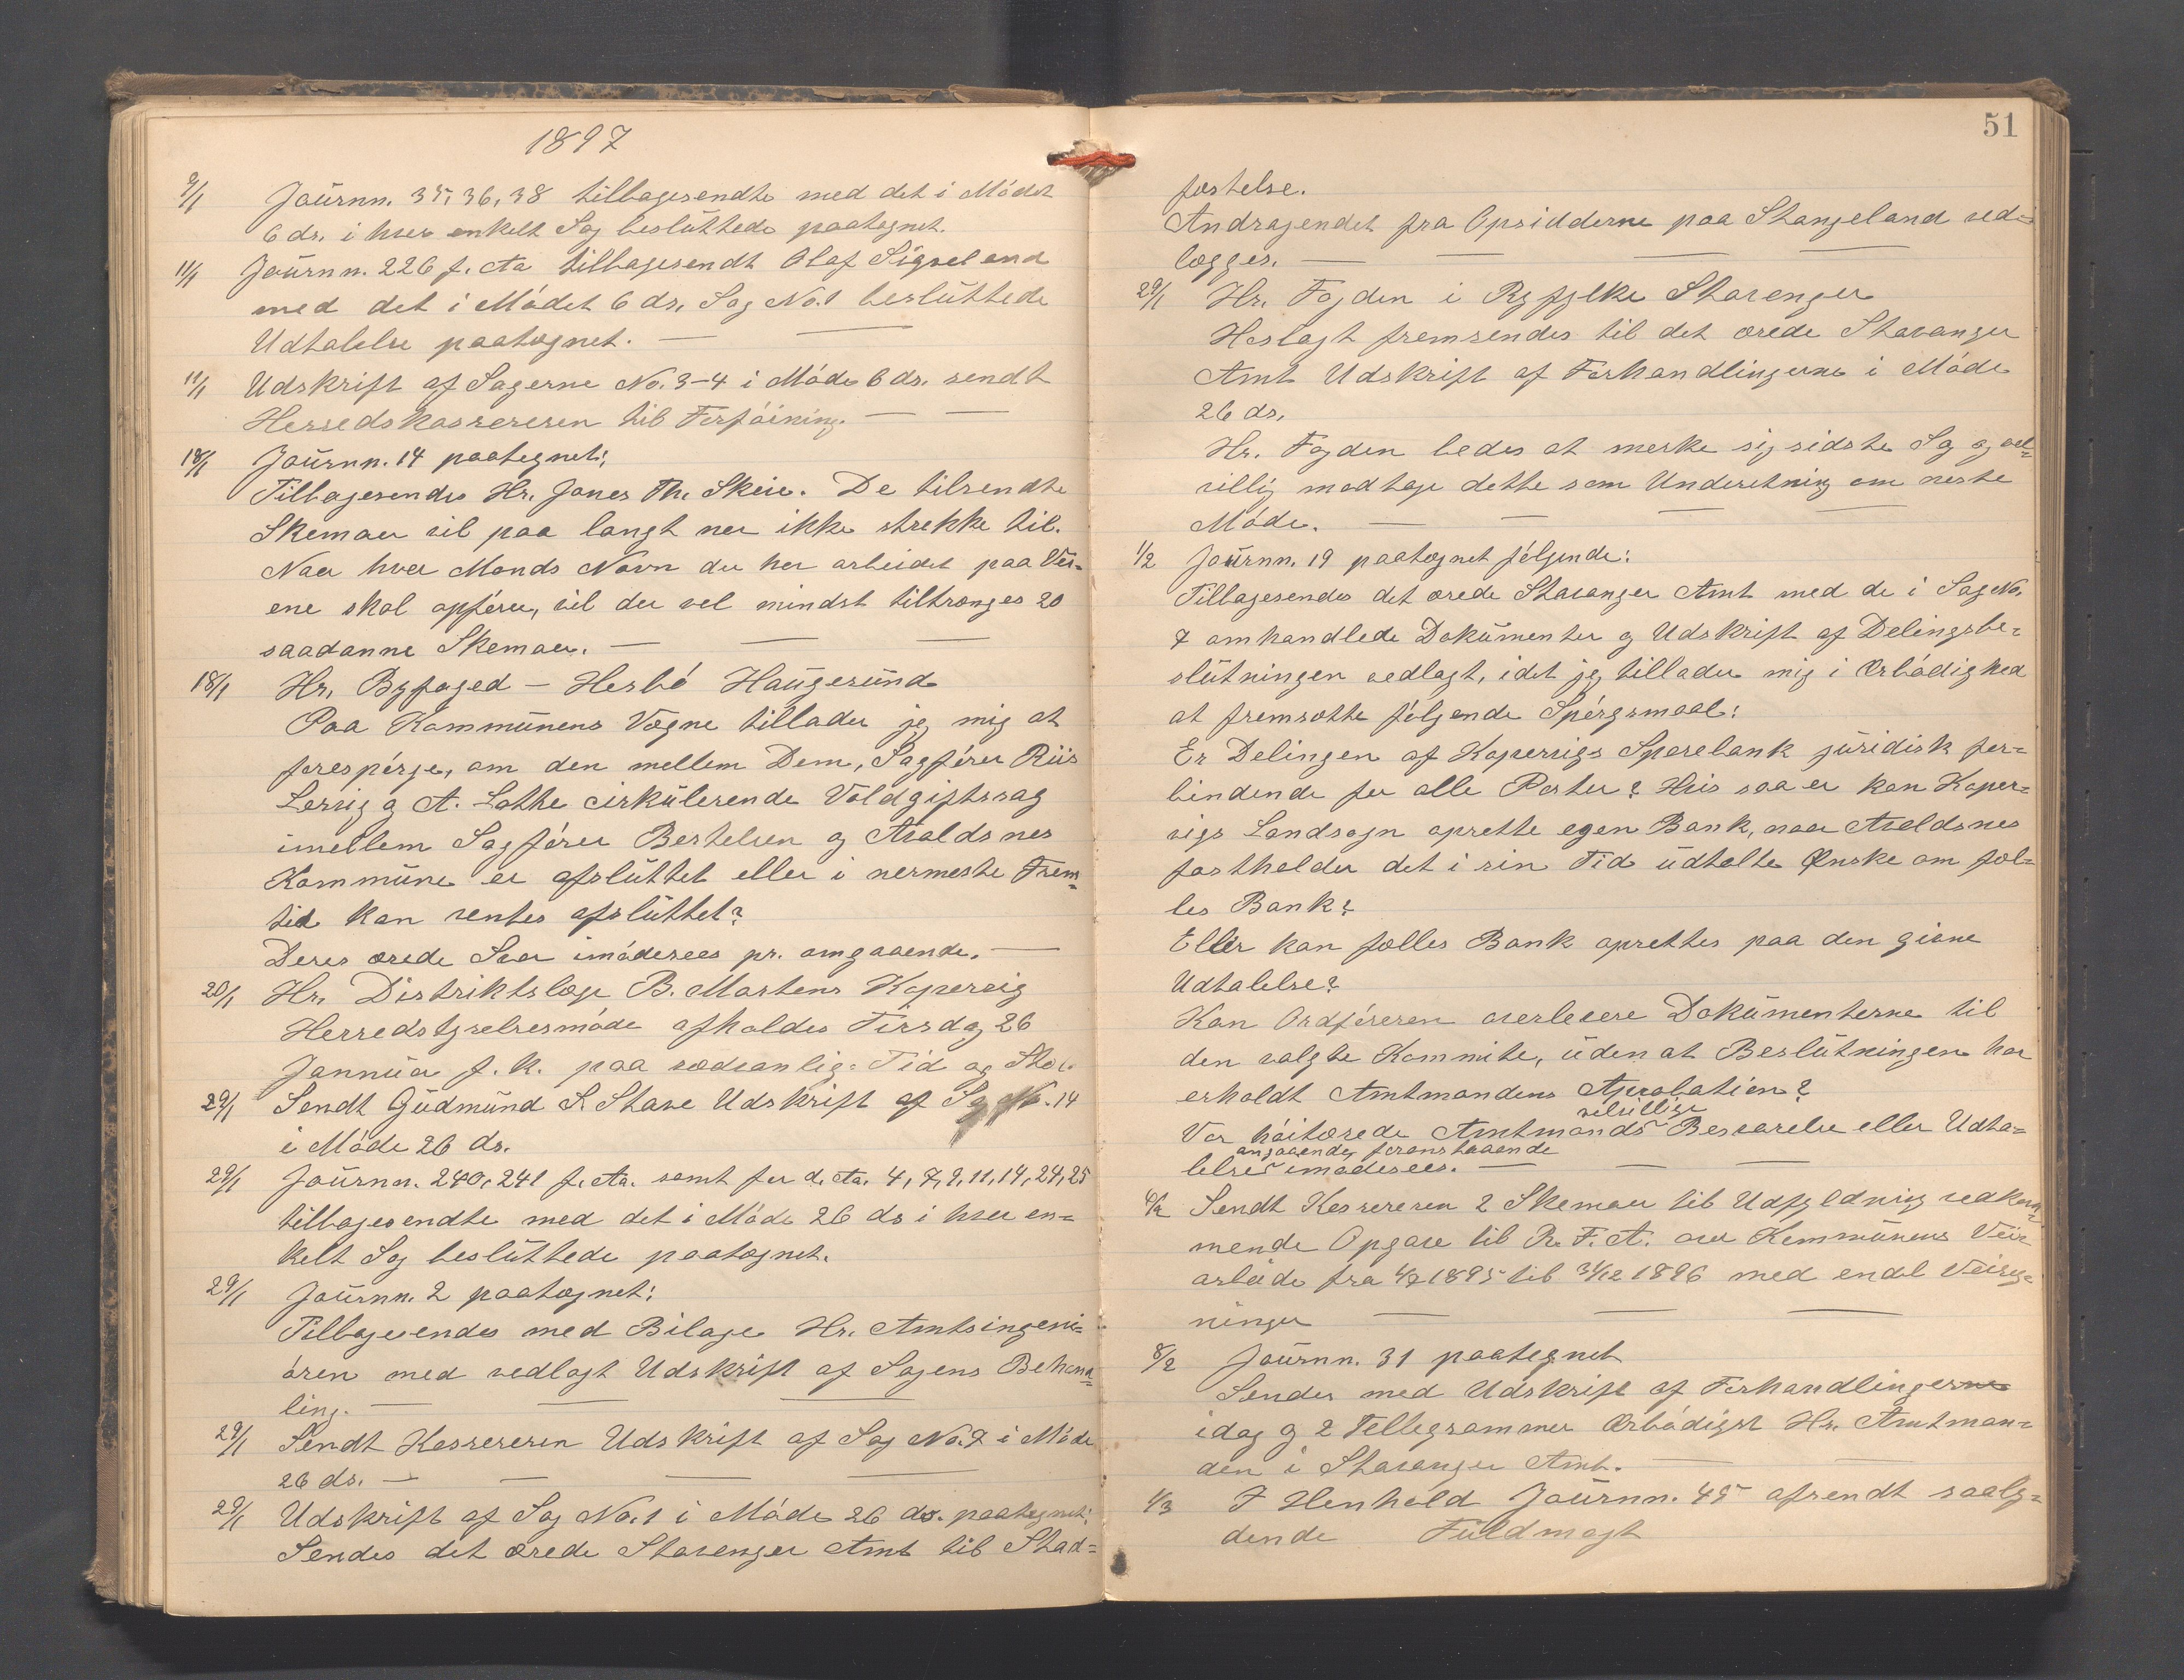 1897
9/1 Journn. 35, 36, 38 tilbagesendte med det i Mødet
6 ds. i hver enkelt Sag besluttede paategnet.
11/1 Journn. 226 f. Aa tilbagesendt Olaf Sigveland
med det i Mødet 6 ds. Sag No. 1 besluttede
Udtalelse paategnet. —
11/1 Udskrift af Sagerne No. 3-4 i Møde 6 ds. sendt
Herredskassereren til Forføining. — —
18/1 Journn. 14 paategnet;
Tilbagesendes Hr. Jones Th. Skeie. De tilsendte
Skemaer vil paa langt nær ikke strekke til.
Naar hver Mands Navn der har arbeidet paa Vei=
ene skal opføres, vil der vel mindst tiltrænges 20
saadanne Skemaer. — — —
18/1 Hr. Byfoged — Hesbø Haugesund
Paa Kommunens Vegne tillader jeg mig at
forespørge, om den mellem Dem, Sagfører Riis
Lervig og A. Lothe cirkulerende Voldgiftssag
imellem Sagfører Bertelsen og Avaldsnes
Kommune er afsluttet eller i nermeste Frem=
tid kan ventes afsluttet?
Deres ærede Svar imødesees pr. omgaaende. —
20/1 Hr. Distriktslæge B. Martens Kopervig
Herredstyrelsesmøde afholdes Tirsdag 26
Januar f. k. paa sædvanlig Tid og Sted.
29/1 Sendt Gudmund S. Stave Udskrift af Sag No. 14
i Møde 26 ds.
29/1 Journn. 240, 241 f. Aa. samt for d. Aa. 4, 7, 9, 11, 14, 24, 25
tilbagesendte med det i Møde 26 ds i hver en=
kelt Sag besluttede paategnet.
29/1 Journn. 2 paategnet;
Tilbagesendes med Bilage Hr. Amtsingeni=
øren med vedlagt Udskrift af Sagens Behand=
ling. — — —
29/1 Sendt Kassereren Udskrift af Sag No. 7 i Møde
26 ds. — — — —
29/1 Udskrift af Sag No. 1 i Møde 26 ds. paategnet;
Sendes det ærede Stavanger Amt til Stad=
51
fæstelse.
Andragendet fra Opsidderne paa Stangeland ved=
lægges. — — — —
29/1 Hr. Fogden i Ryfylke Stavanger
Hoslagt fremsendes til det ærede Stavanger
Amt Udskrift af Forhandlingerne i Møde
26 ds.
Hr. Fogden bedes at merke sig sidste Sag og vel=
villig modtage dette som Underetning om neste
Møde. — — — —
1/2 Journn. 19 paategnet følgende:
Tilbagesendes det ærede Stavanger Amt med de i Sag No.
7 omhandlede Dokumenter og Udskrift af Delingsbe=
slutningen vedlagt, idet jeg tillader mig i Ærbødighed
at fremsætte følgende Spørgsmaal:
Er Delingen af Kopervigs Sparebank juridisk for=
bindende for alle Parter? Hvis saa er kan Koper=
vigs Landsogn oprette egen Bank, naar Avaldsnes
fastholder det i sin Tid udtalte Ønske om fæl=
les Bank?
Eller kan fælles Bank oprettes paa den givne
Udtalelse?
Kan Ordføreren overlevere Dokumenterne til
den valgte Kommite, uden at Beslutningen har
erholdt Amtmandens Aprobation?
velvillige
Vor høitærede Amtmands Besvarelse eller Udta=
angaaende foranstaaende
lelse imødesees. — — —
6/2 Sendt Kassereren 2 Skemaer til Udfyldning vedkom=
mende Opgave til R. F. A. over Kommunens Vei
arbeide fra 1/7 1895 til 31/12 1896 med endel Veireg=
ninger — — —
8/2 Journn. 31 paategnet
Sendes med Udskrift af Forhandlingerne
idag og 2 Tellegrammer Ærbødigst Hr. Amtman=
den i Stavanger Amt. — —
1/3 I Henhold Journn. 45 afsendt saaly=
dende Fuldmagt